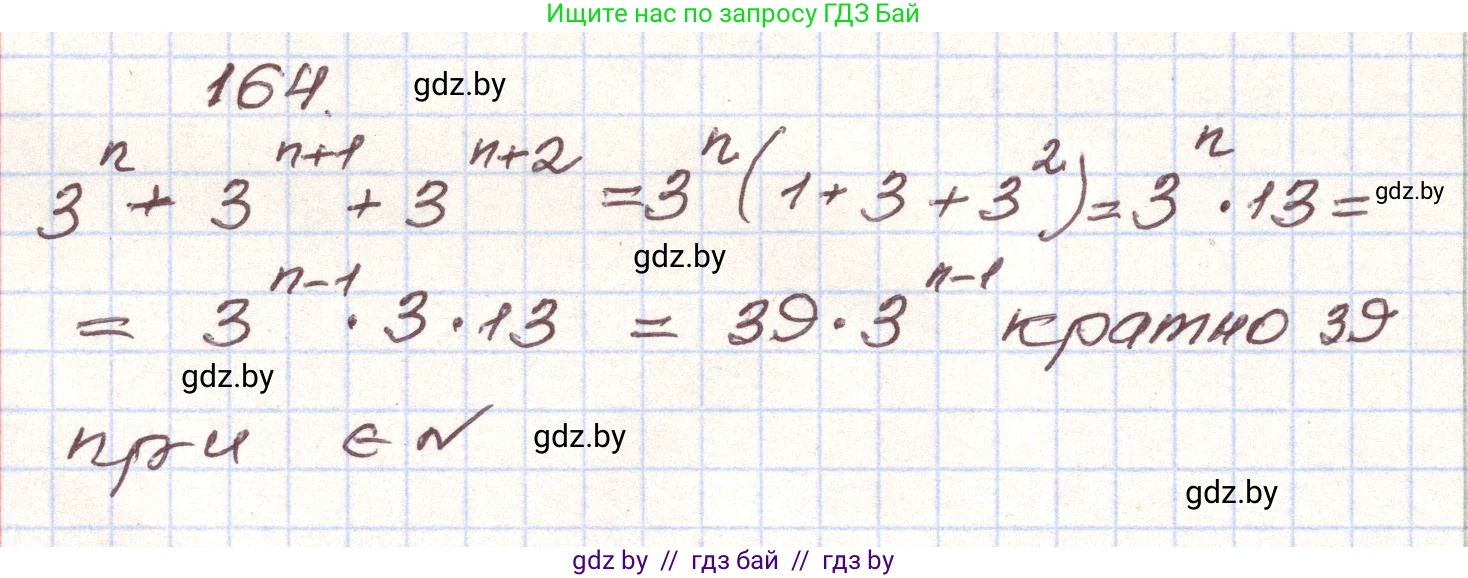 Ищите нас по запросу ГДЗ Бай
164. gdz.by
3ⁿ + 3ⁿ⁺¹ + 3ⁿ⁺² = 3ⁿ(1 + 3 + 3²) = 3ⁿ · 13 = gdz.by
gdz.by
= 3ⁿ⁻¹ · 3 · 13 = 39 · 3ⁿ⁻¹ кратно 39
gdz.by
при ∈ N gdz.by
gdz.by
gdz by // гдз бай // гдз by